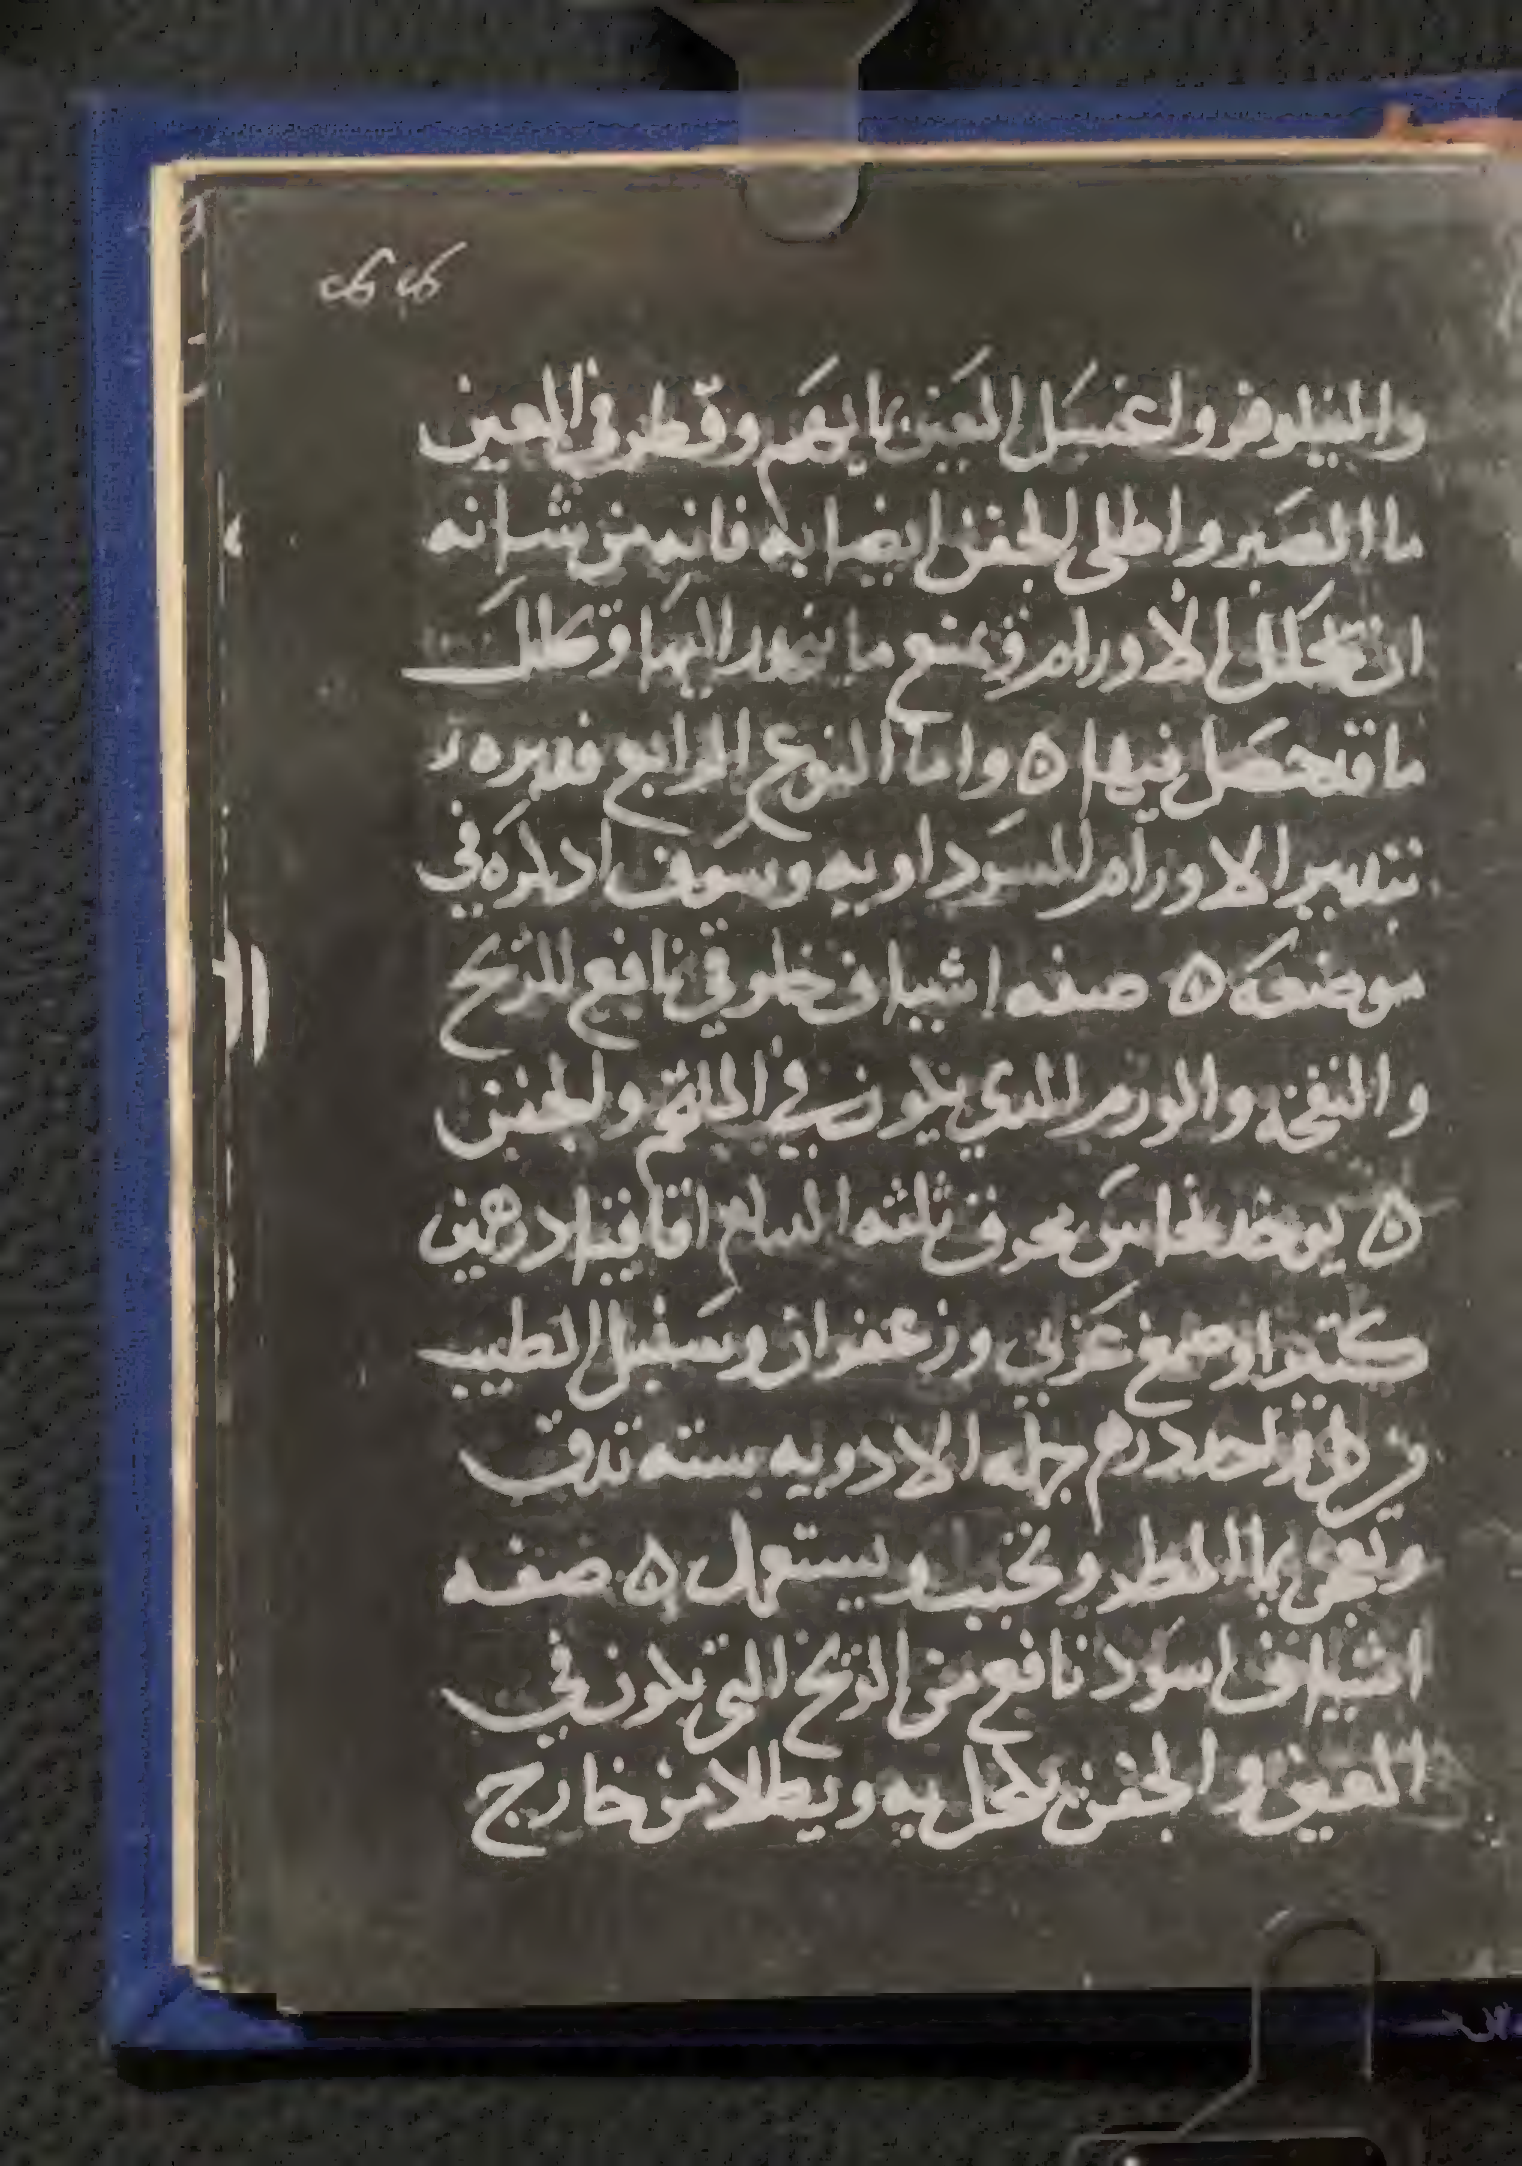 والنيلوفر واغسل العين بمايهم وقطر في العين
ما الصبر واطلى الجفن ايضا به فانه من شانه
ان تحلل الاورام وتمنع ما ينحدر اليها وتحلل
ما قد حصل فيها ه واما النوع الرابع فدبره
بتدبير الاورام السوداويه وسوف ادكره في
موضعه ه صفه اشياف خلوقي نافع للريح
والنفخه والورم الدي يكون في الملتحم والجفن
ه يوخد نحاس محرق ثلثه اقاقيا درهمين
كتيرا وصمغ عربي وزعفران وسنبل الطيب
درهم جمله الادويه بسته تدق
وتعجن بما المطر وتحبب ويستعمل ه صفه
اشياف اسود نافع من الريح التي تكون في
العين والجفن يكحل به ويطلا من خارج